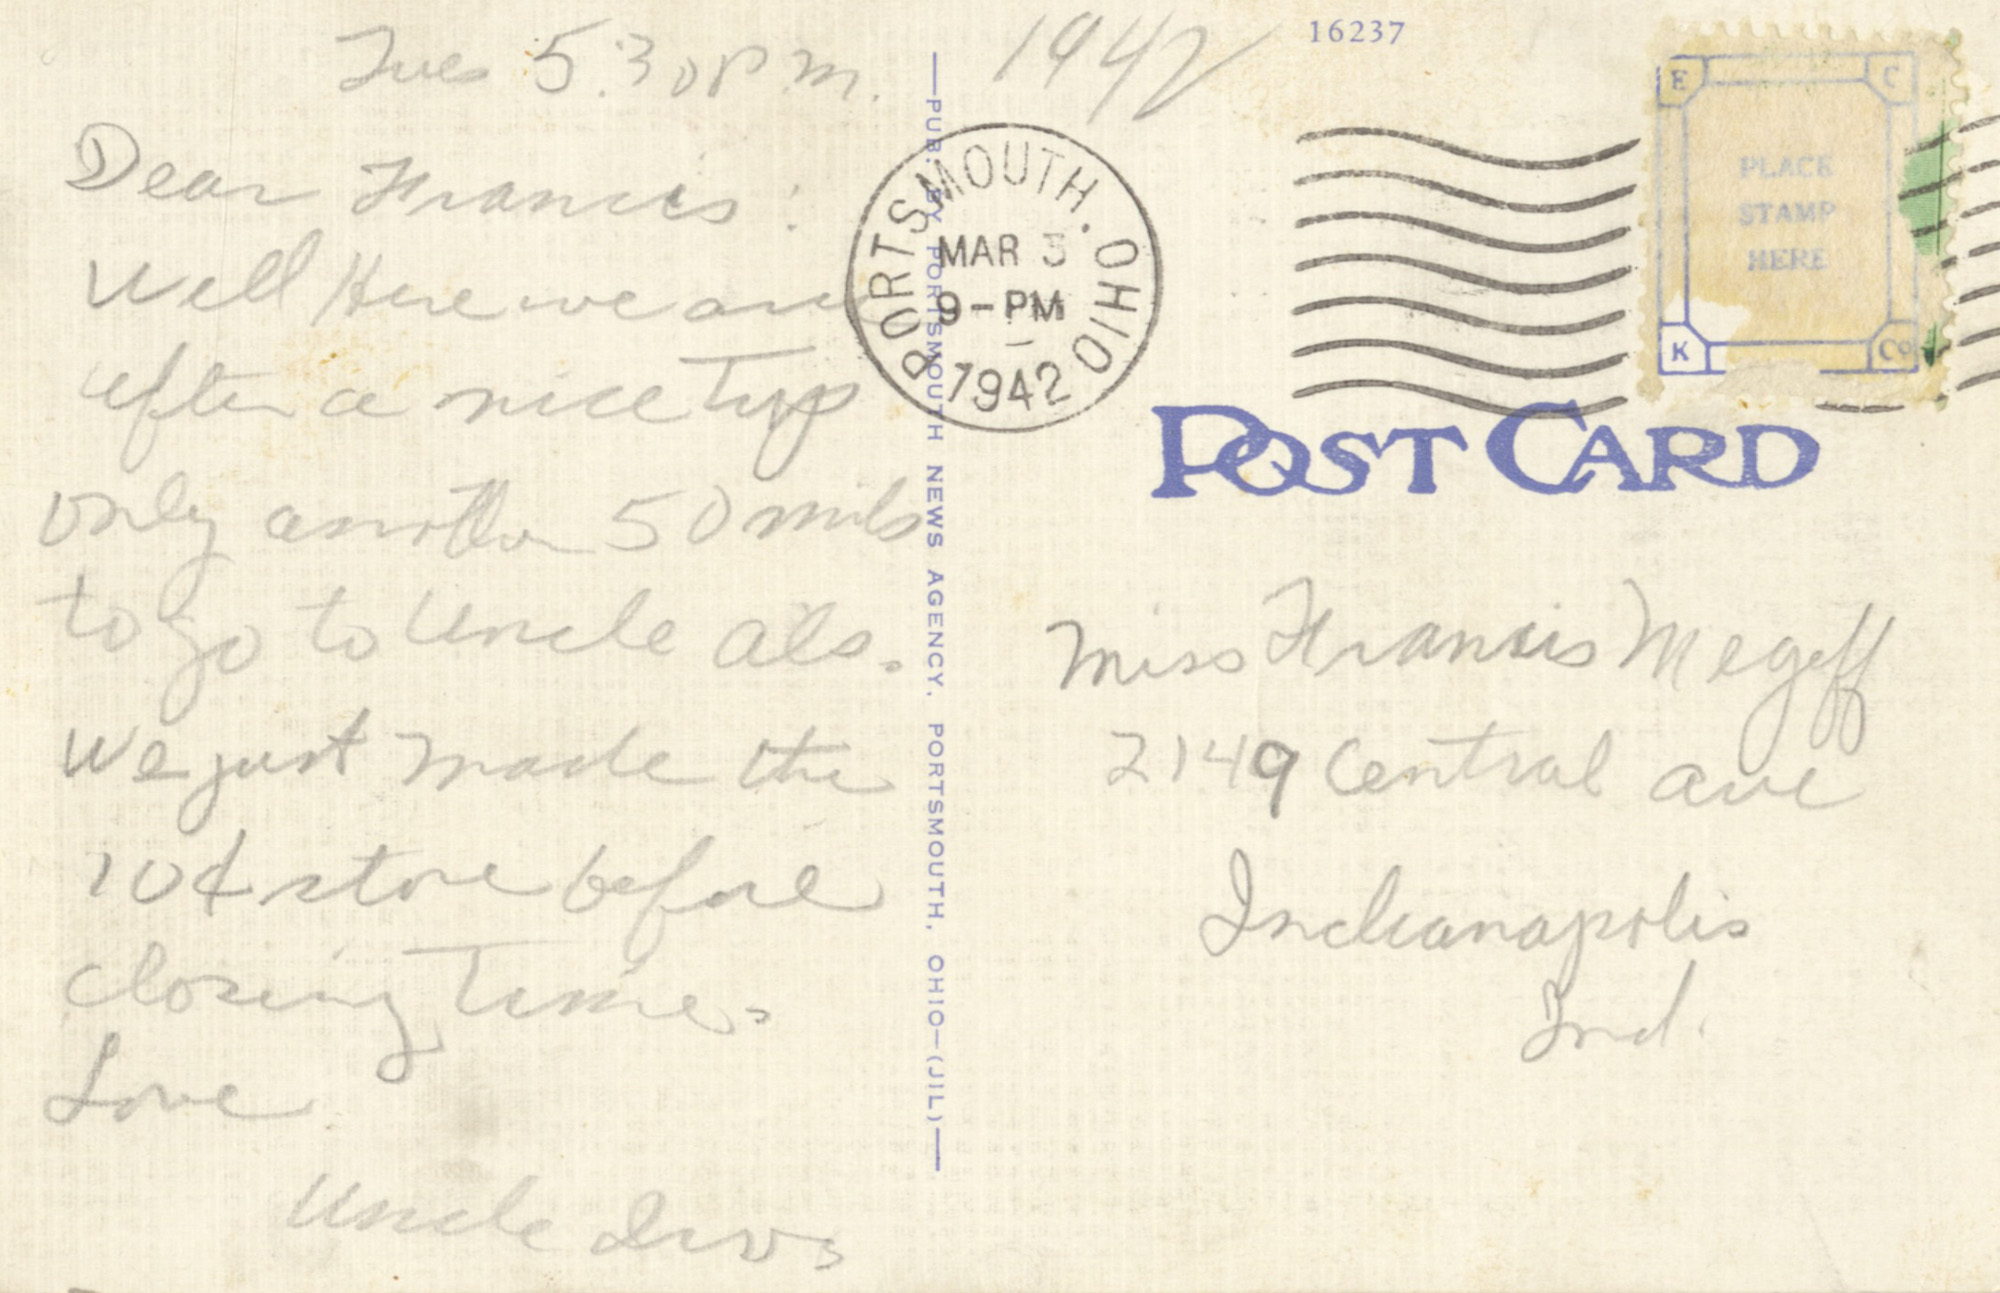 Tues 5:30 P.M.
1942
16237
Dear Francis:
Well Here we are
after a nice Trip
only another 50 miles
to go to Uncle Als.
We just made the
10¢ store before
closing Time.
Love
Uncle
PUB. BY PORTSMOUTH NEWS AGENCY, PORTSMOUTH, OHIO—(JIL)
PORTSMOUTH. OHIO
MAR 3
9-PM
1942
E C
PLACE
STAMP
HERE
K Co
POST CARD
Miss Francis Megeff
2149 Central Ave
Indianapolis
Ind.